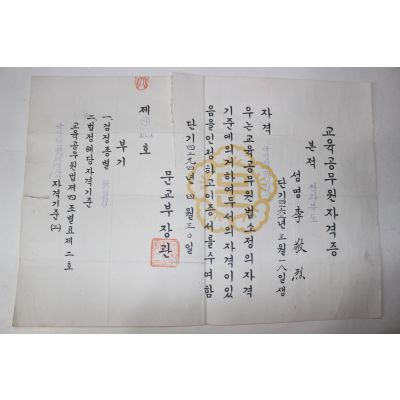 교육공무원자격증
본적
성명 李敬烈
단기四二六 년三월一八일생
자격
우는교육공무원법소정의자격
기준에의거하여두서의자격이있
음을인정하고이증서를수여함
단기四二九四년四월三〇일
문교부장관
제 호
부기
一. 검정종별
二. 법정해당자격기준
교육공무원법제四조별표제二호
자격기준(五)